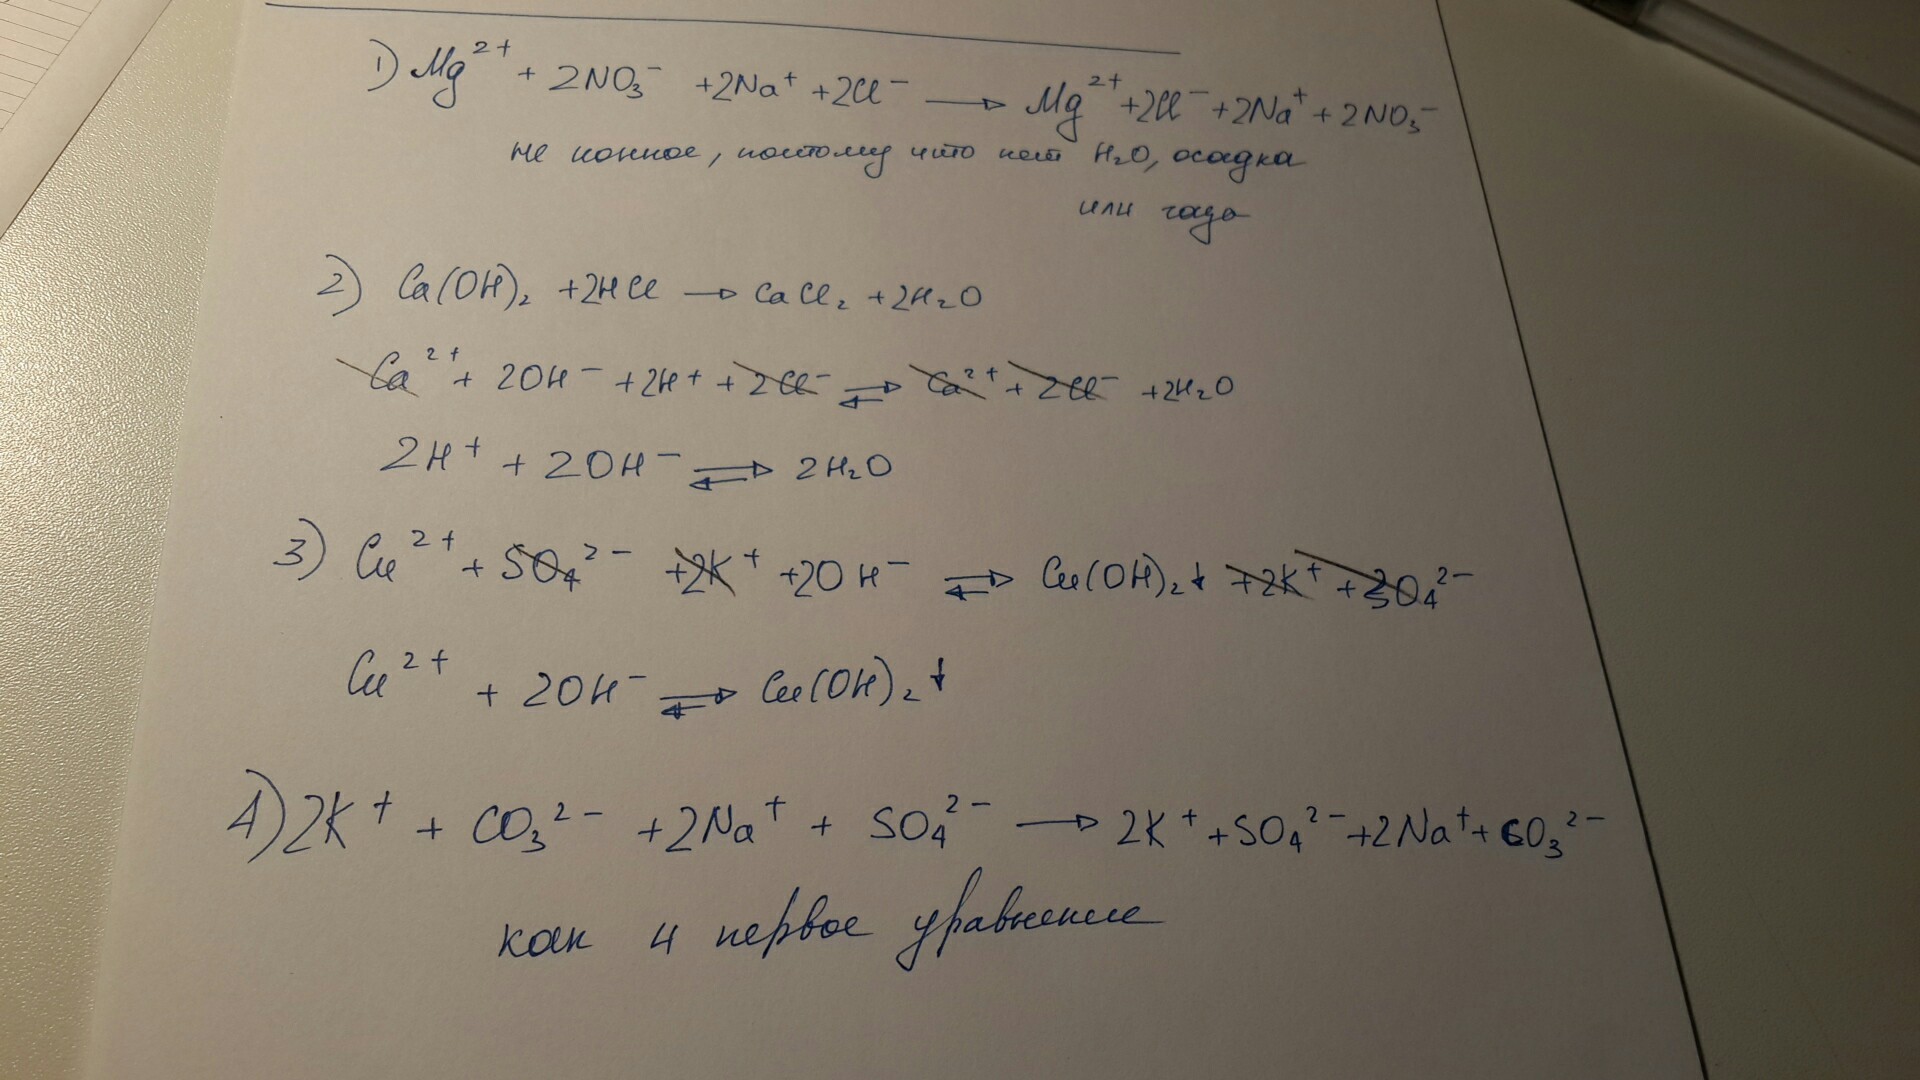 1) Mg²⁺ + 2NO₃⁻ +2Na⁺ +2Cl⁻ → Mg²⁺+2Cl⁻+2Na⁺+2NO₃⁻
не ионное, поэтому что нет H₂O, осадка
или газа
2) Ca(OH)₂ +2HCl → CaCl₂ +2H₂O
Ca²⁺ + 2OH⁻ +2H⁺ +2Cl⁻ ⇄ Ca²⁺ + 2Cl⁻ +2H₂O
2H⁺ + 2OH⁻ ⇄ 2H₂O
3) Cu²⁺ + SO₄²⁻ +2K⁺ +2OH⁻ ⇄ Cu(OH)₂↓ +2K⁺ + SO₄²⁻
Cu²⁺ + 2OH⁻ ⇄ Cu(OH)₂↓
4) 2K⁺ + CO₃²⁻ +2Na⁺ + SO₄²⁻ → 2K⁺ +SO₄²⁻+2Na⁺+ CO₃²⁻
как и первое уравнение